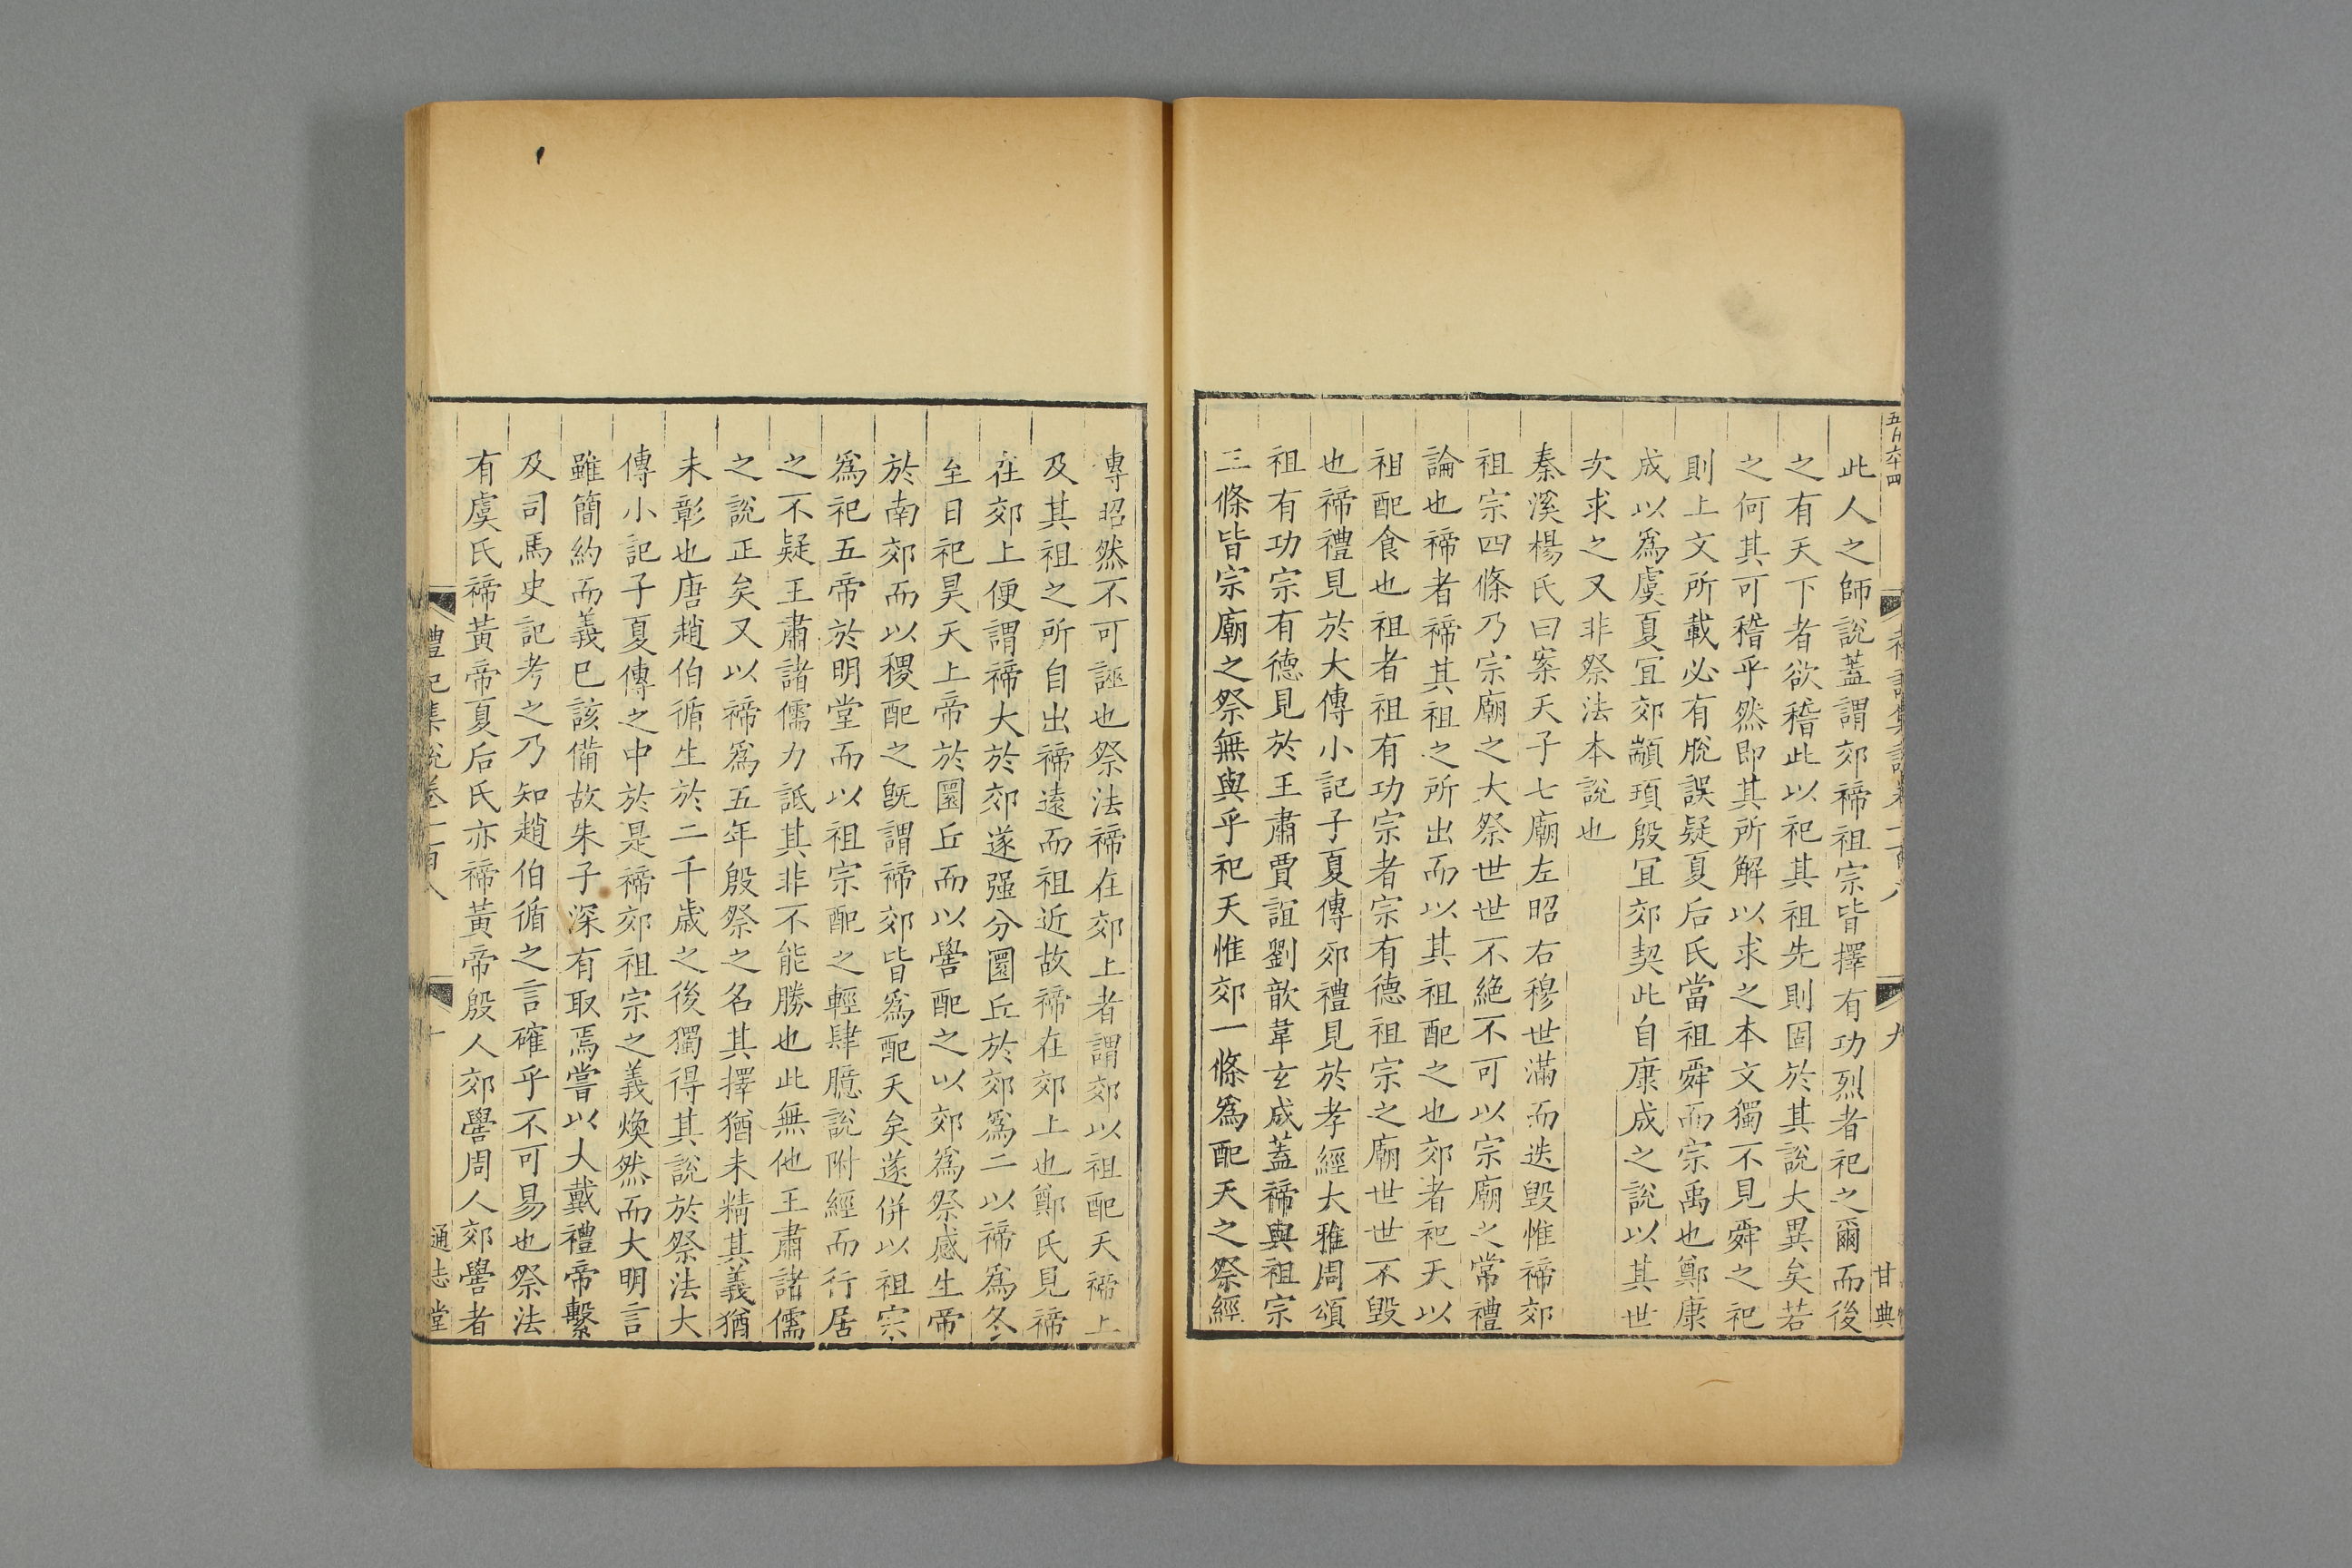 此人之師說蓋謂郊禘祖宗皆擇有功烈者祀之爾而後
之有天下者欲稽此以祀其祖先則固於其說大異矣若
之何其可稽乎然即其所解以求之本文獨不見舜之祀
則上文所載必有脫誤疑夏后氏當祖舜而宗禹也鄭康
成以爲虞夏宜郊顓頊殷宜郊契此自康成之說以其世
次求之又非祭法本說也
秦溪楊氏曰案天子七廟左昭右穆世滿而迭毀惟禘郊
祖宗四條乃宗廟之大祭世世不絶不可以宗廟之常禮
論也禘者禘其祖之所出而以其祖配之也郊者祀天以
祖配食也祖者祖有功宗者宗有德祖宗之廟世世不毀
也禘禮見於大傳小記子夏傳郊禮見於孝經大雅周頌
祖有功宗有德見於王肅賈誼劉歆韋玄成蓋禘與祖宗
三條皆宗廟之祭無與乎祀天惟郊一條爲配天之祭經
傳昭然不可誣也祭法禘在郊上者謂郊以祖配天禘上
及其祖之所自出禘遠而祖近故禘在郊上也鄭氏見禘
在郊上便謂禘大於郊遂强分圜丘於郊爲二以禘爲冬
至日祀昊天上帝於圜丘而以嚳配之以郊爲祭感生帝
於南郊而以稷配之旣謂禘郊皆爲配天矣遂併以祖宗
爲祀五帝於明堂而以祖宗配之輕肆臆說附經而行居
之不疑王肅諸儒力詆其非不能勝也此無他王肅諸儒
之說正矣又以禘爲五年殷祭之名其擇猶未精其義猶
未彰也唐趙伯循生於二千歲之後獨得其說於祭法大
傳小記子夏傳之中於是禘郊祖宗之義煥然而大明言
雖簡約而義已該備故朱子深有取焉嘗以大戴禮帝繫
及司馬史記考之乃知趙伯循之言確乎不可易也祭法
有虞氏禘黃帝夏后氏亦禘黃帝殷人郊嚳周人郊嚳者
禮記集說卷一百八
十
通志堂
九
甘典